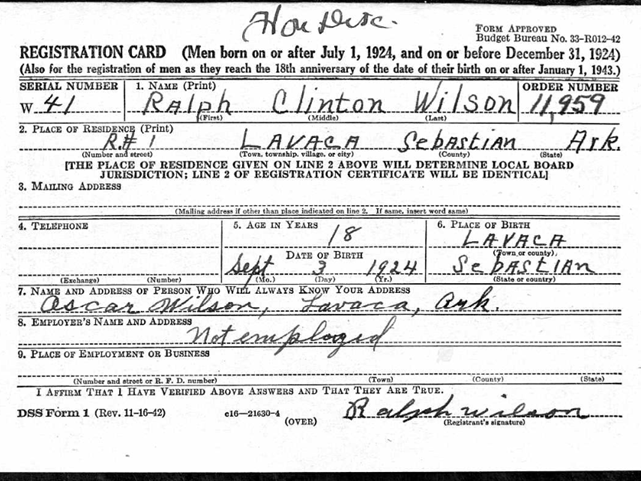 Hon Disc.
FORM APPROVED
Budget Bureau No. 33-R012-42
REGISTRATION CARD (Men born on or after July 1, 1924, and on or before December 31, 1924)
(Also for the registration of men as they reach the 18th anniversary of the date of their birth on or after January 1, 1943.)
SERIAL NUMBER 1. NAME (Print) ORDER NUMBER
W 41 Ralph Clinton Wilson 11,959
(First) (Middle) (Last)
2. PLACE OF RESIDENCE (Print)
R#1 LAVACA Sebastian Ark.
(Number and street) (Town, township, village, or city) (County) (State)
[THE PLACE OF RESIDENCE GIVEN ON LINE 2 ABOVE WILL DETERMINE LOCAL BOARD
JURISDICTION; LINE 2 OF REGISTRATION CERTIFICATE WILL BE IDENTICAL]
3. MAILING ADDRESS
(Mailing address if other than place indicated on line 2. If same, insert word same)
4. TELEPHONE 5. AGE IN YEARS 6. PLACE OF BIRTH
18 LAVACA
DATE OF BIRTH (Town or county)
Sept 3 1924 SEBASTIAN
(Exchange) (Number) (Mo.) (Day) (Yr.) (State or country)
7. NAME AND ADDRESS OF PERSON WHO WILL ALWAYS KNOW YOUR ADDRESS
Oscar Wilson, Lavaca, Ark.
8. EMPLOYER'S NAME AND ADDRESS
Not employed
9. PLACE OF EMPLOYMENT OR BUSINESS
(Number and street or R. F. D. number) (Town) (County) (State)
I AFFIRM THAT I HAVE VERIFIED ABOVE ANSWERS AND THAT THEY ARE TRUE.
DSS Form 1 (Rev. 11-16-42) c16-21630-4 Ralph Wilson
(OVER) (Registrant's signature)